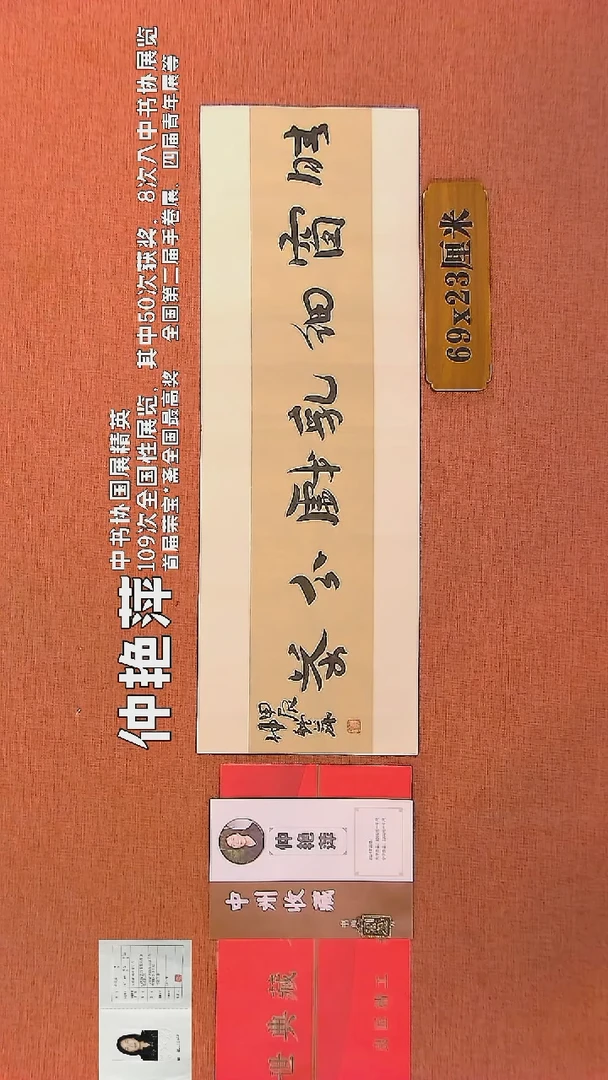 仲艳萍
中书协国展精英
109次全国性展览，其中50次获奖，8次入中书协展览
首届荣宝·斋全国最高奖 全国第二届手卷展、四届青年展等
晴窗細乳戲分茶
甲辰
69x23厘米
仲艳萍
中州收藏
世典藏